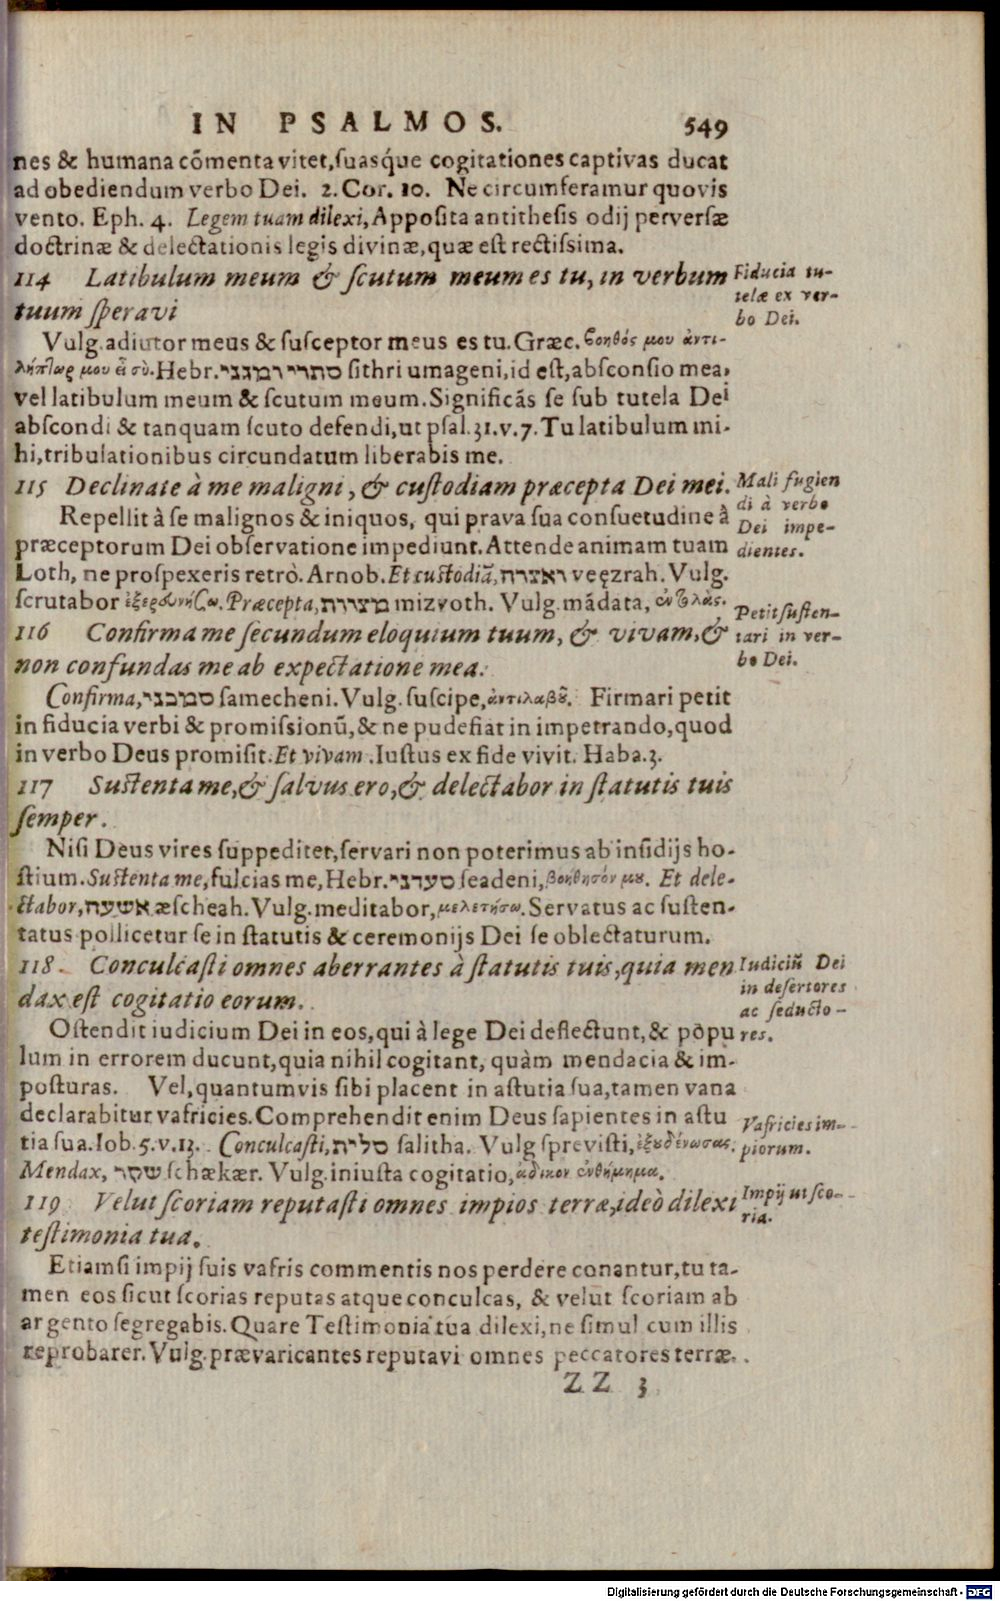 IN PSALMOS. 549
nes & humana cõmenta vitet, suasq́ue cogitationes captivas ducat
ad obediendum verbo Dei. 2. Cor. 10. Ne circumferamur quovis
vento. Eph. 4. Legem tuam dilexi, Apposita antithesis odij perversæ
doctrinæ & delectationis legis divinæ, quæ est rectissima.
114 Latibulum meum & scutum meum es tu, in verbum
tuum speravi
Fiducia tu-
telæ ex ver-
bo Dei.
Vulg. adiutor meus & susceptor meus es tu. Græc. βοηθός μου ἀντι-
λήπτωρ μου εἶ σύ. Hebr. סתרי ומגני sithri umageni, id est, absconsio mea,
vel latibulum meum & scutum meum. Significãs se sub tutela Dei
abscondi & tanquam scuto defendi, ut psal. 31. v. 7. Tu latibulum mi-
hi, tribulationibus circundatum liberabis me.
115 Declinate à me maligni, & custodiam præcepta Dei mei.
Mali fugien
di à verbo
Dei impe-
dientes.
Repellit à se malignos & iniquos, qui prava sua consuetudine à
præceptorum Dei observatione impediunt. Attende animam tuam
Loth, ne prospexeris retrò. Arnob. Et custodiã, ואצרה veęzrah. Vulg.
scrutabor ἐξερευνήσω. Præcepta, מצוות mizvoth. Vulg. mãdata, ἐντολὰς.
116 Confirma me secundum eloquium tuum, & vivam, &
non confundas me ab expectatione mea.
Petit susten-
tari in ver-
bo Dei.
Confirma, סמכני samecheni. Vulg. suscipe, ἀντιλαβοῦ. Firmari petit
in fiducia verbi & promissionũ, & ne pudefiat in impetrando, quod
in verbo Deus promisit. Et vivam. Iustus ex fide vivit. Haba. 3.
117 Sustenta me, & salvus ero, & delectabor in statutis tuis
semper.
Nisi Deus vires suppeditet, servari non poterimus ab insidijs ho-
stium. Sustenta me, fulcias me, Hebr. סעדני seadeni, βοήθησόν μου. Et dele-
ctabor, אשעה æscheah. Vulg. meditabor, μελετήσω. Servatus ac susten-
tatus pollicetur se in statutis & ceremonijs Dei se oblectaturum.
118. Conculcasti omnes aberrantes à statutis tuis, quia men
dax est cogitatio eorum.
Iudiciũ Dei
in desertores
ac seducto-
res.
Ostendit iudicium Dei in eos, qui à lege Dei deflectunt, & põpu
lum in errorem ducunt, quia nihil cogitant, quàm mendacia & im-
posturas. Vel, quantumvis sibi placent in astutia sua, tamen vana
declarabitur vafricies. Comprehendit enim Deus sapientes in astu
tia sua. Iob. 5. v. 13. Conculcasti, סלית salitha. Vulg sprevisti, ἐξουδένωσας.
Vafricies im-
piorum.
Mendax, שקר schækær. Vulg. iniusta cogitatio, ἄδικον ἐνθύμημα.
119 Velut scoriam reputasti omnes impios terræ, ideò dilexi
testimonia tua.
Impij ut sco-
ria.
Etiamsi impij suis vafris commentis nos perdere conantur, tu ta-
men eos sicut scorias reputas atque conculcas, & velut scoriam ab
argento segregabis. Quare Testimonia tua dilexi, ne simul cum illis
reprobarer. Vulg. prævaricantes reputavi omnes peccatores terræ.
ZZ 3
Digitalisierung gefördert durch die Deutsche Forschungsgemeinschaft - DFG